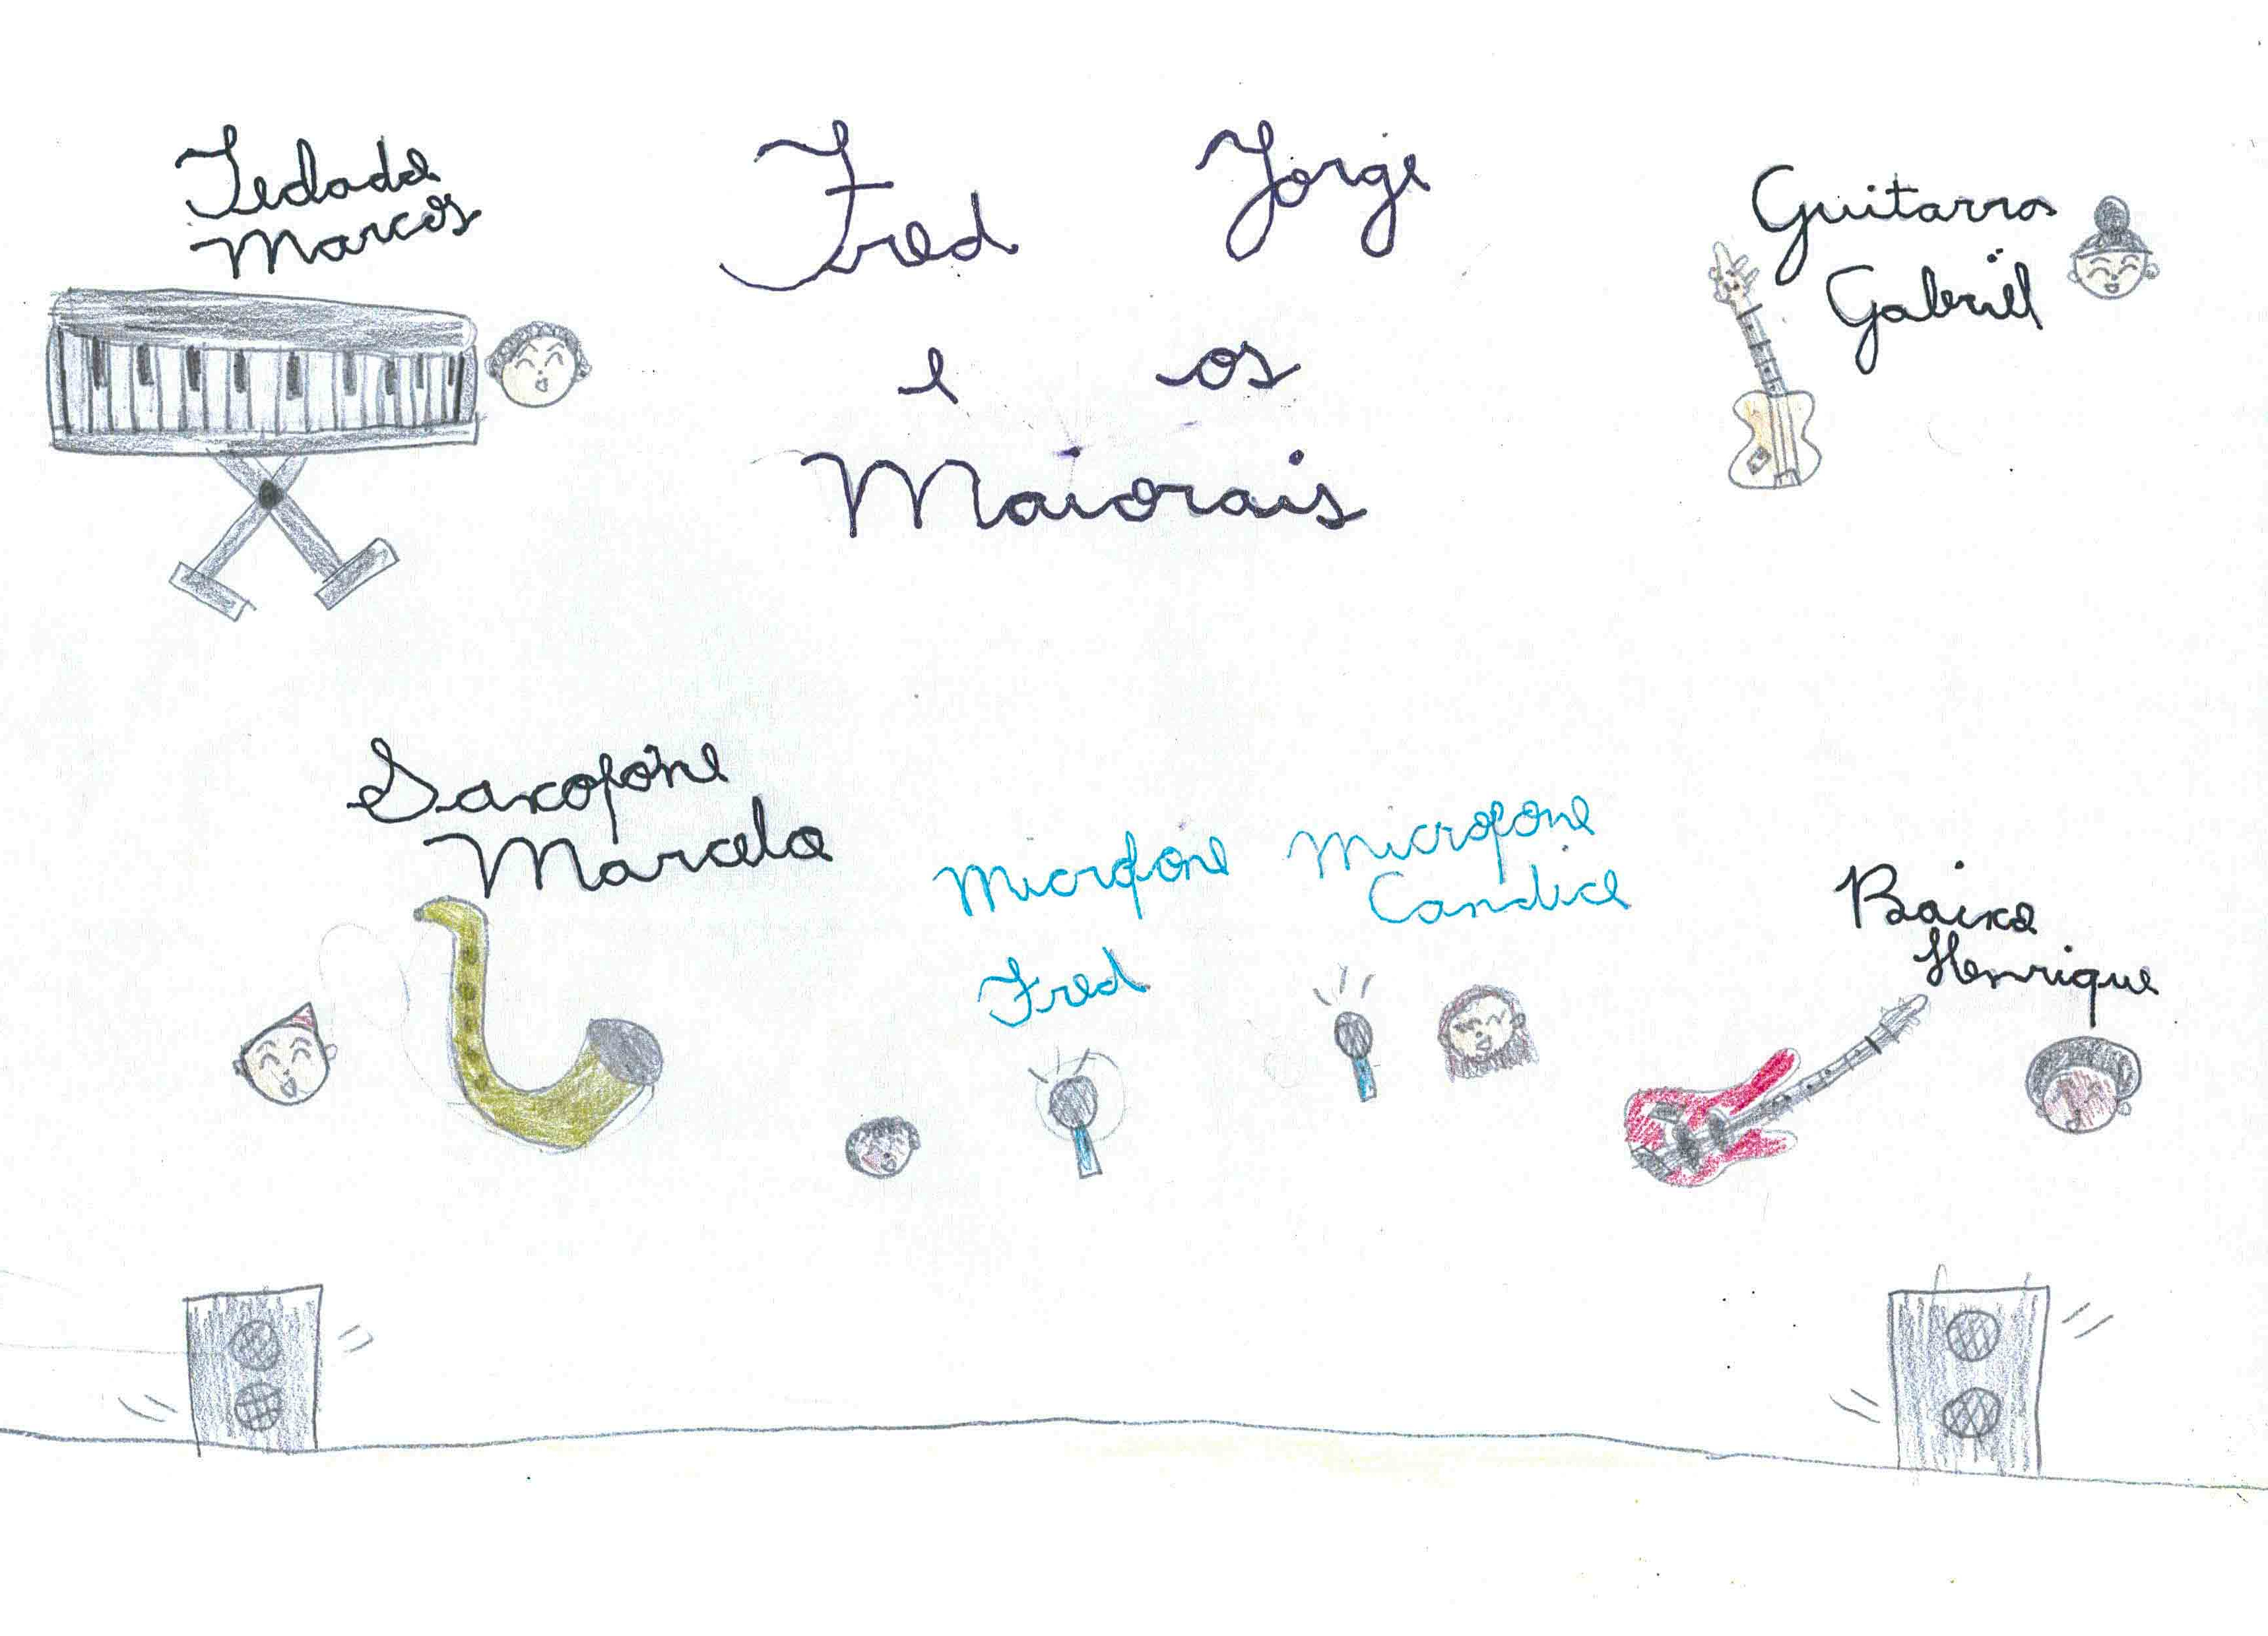 Teclado
Marcos
Fred Jorge
e os
Maiorais
Guitarra
Gabriel
Saxofone
Marcelo
Microfone
Fred
Microfone
Candice
Baixo
Henrique